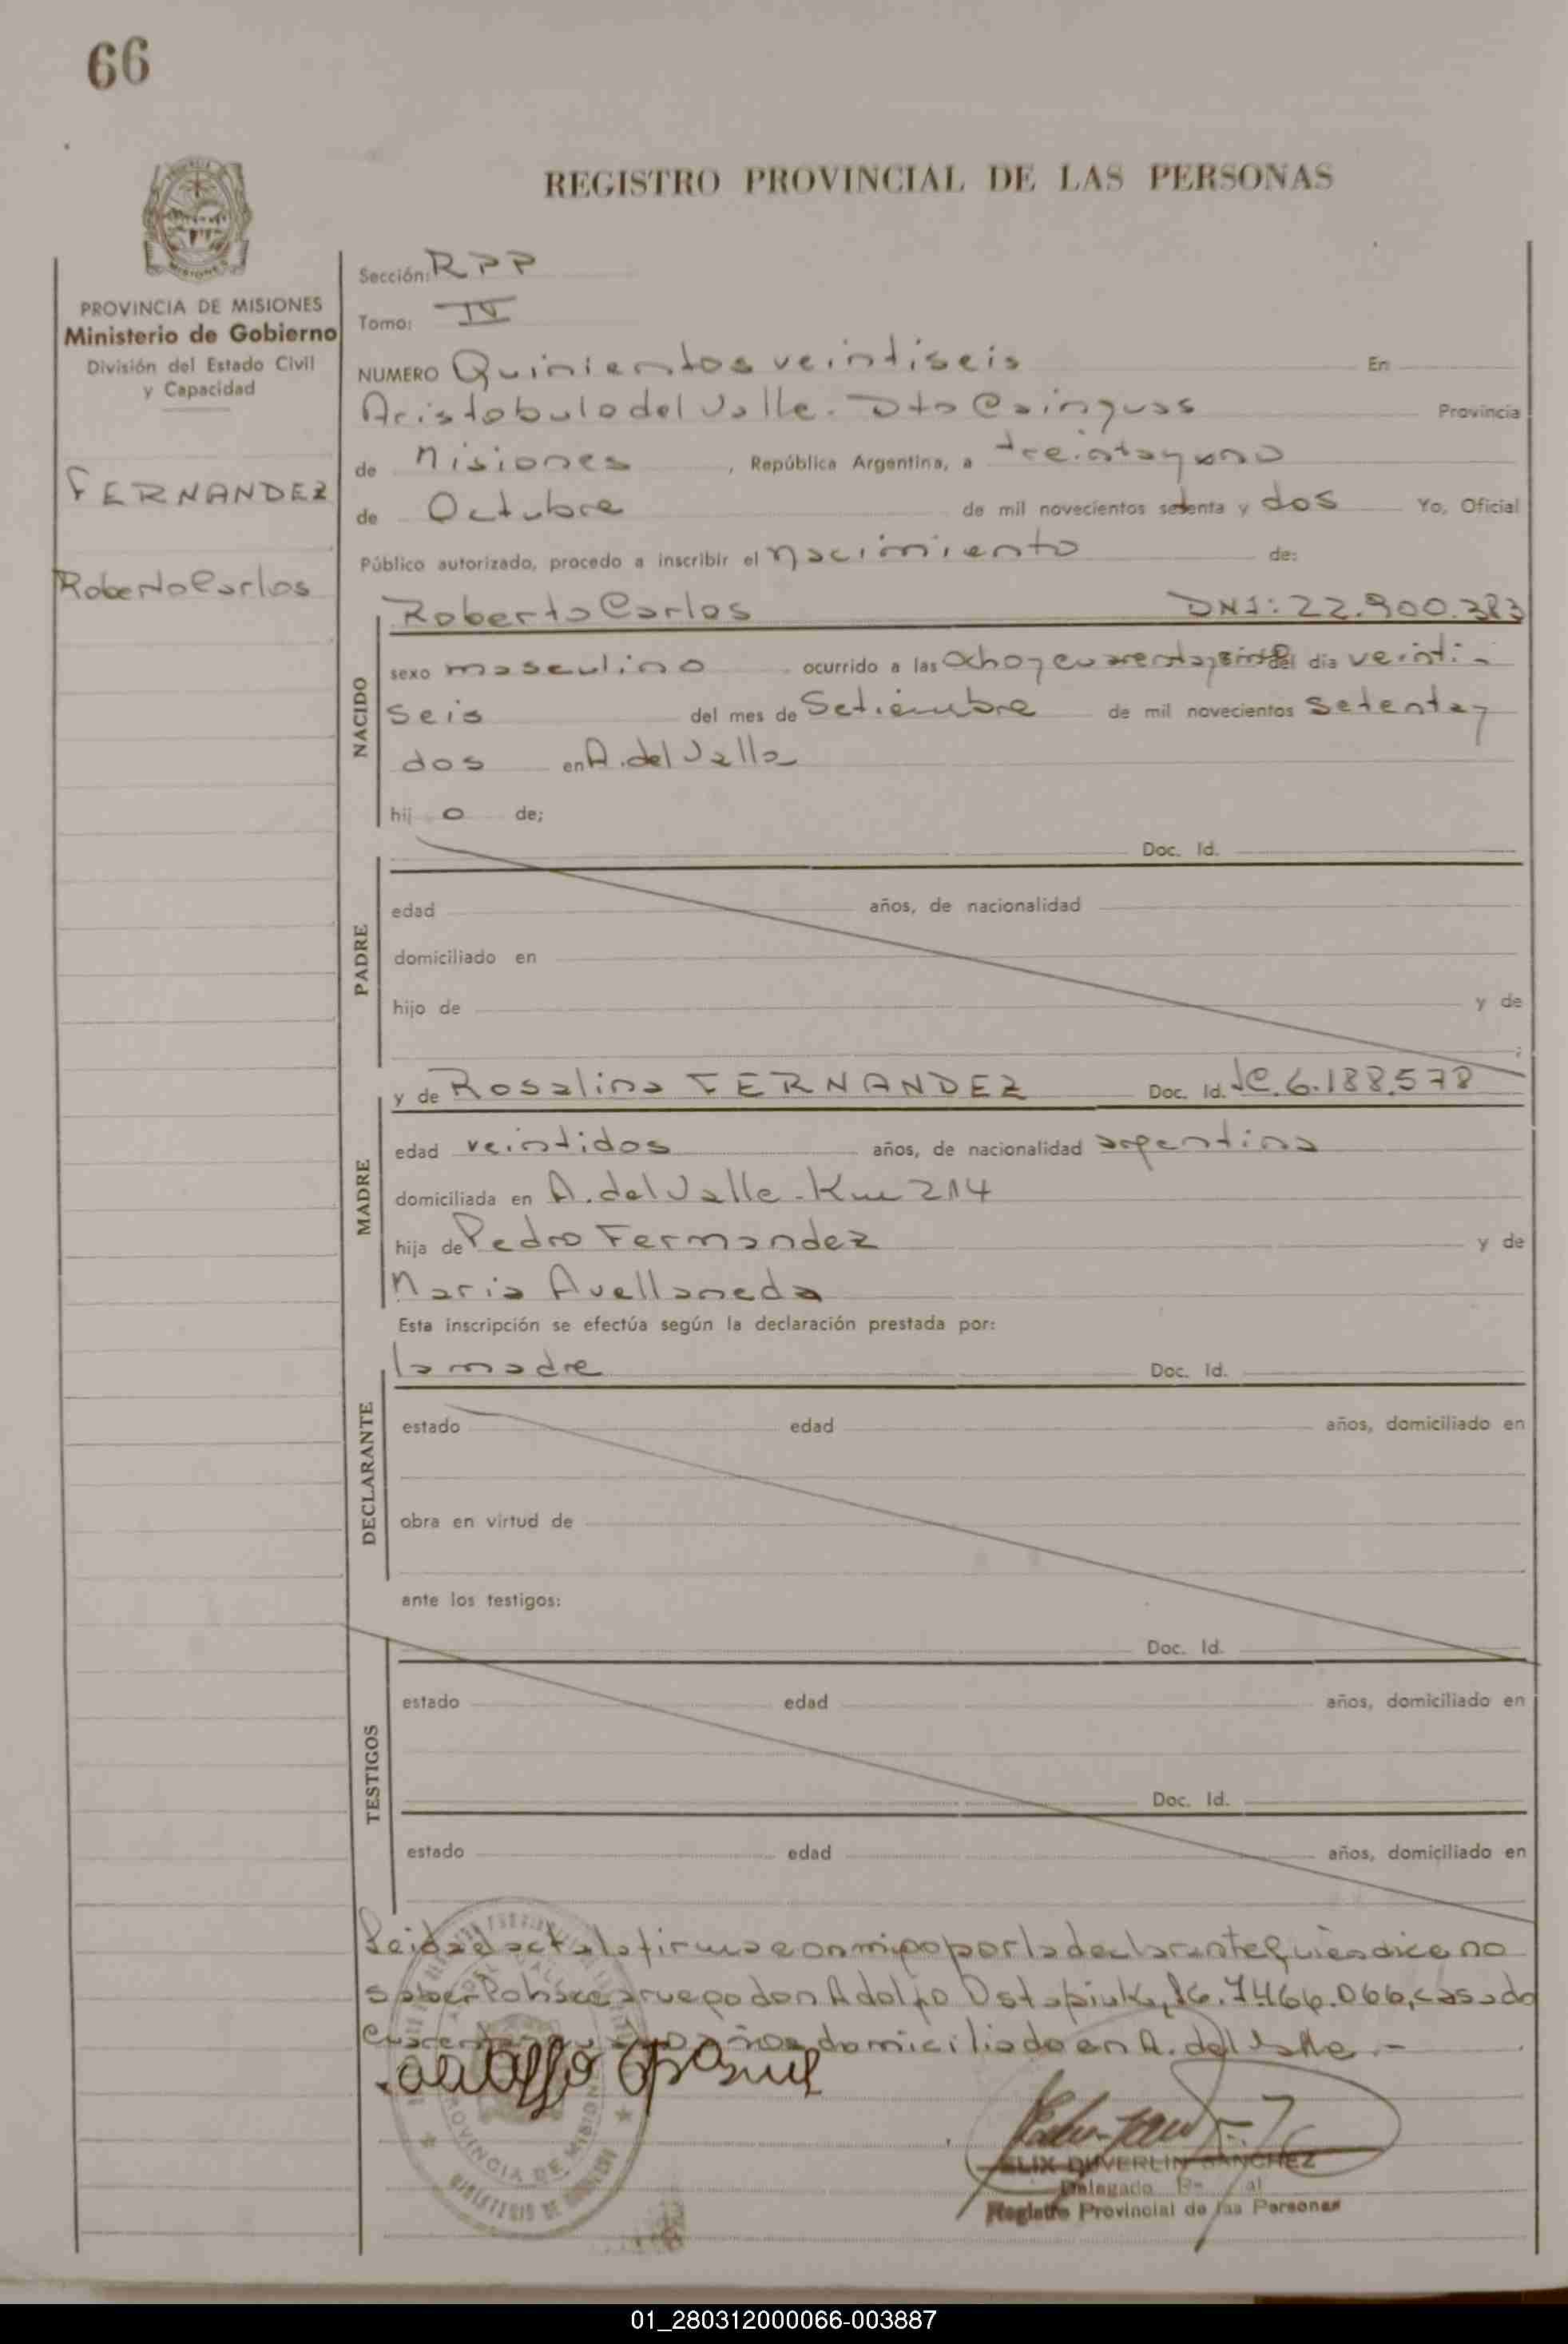 66
REGISTRO PROVINCIAL DE LAS PERSONAS
PROVINCIA DE MISIONES
Ministerio de Gobierno
División del Estado Civil
y Capacidad
FERNANDEZ
Roberto Carlos
Sección: RPP
Tomo: IV
NUMERO Quinientos veintiseis En
Aristobulo del Valle. Dto Cainguas Provincia
de Misiones, República Argentina, a treinta y uno
de Octubre de mil novecientos setenta y dos Yo, Oficial
Público autorizado, procedo a inscribir el nacimiento de:
NACIDO
Roberto Carlos DNI: 22.900.383
sexo masculino ocurrido a las ocho y cuarenta y del día veinti-
seis del mes de Setiembre de mil novecientos setenta y
dos en A. del Valle
hij o de;
PADRE
Doc. Id.
edad años, de nacionalidad
domiciliado en
hijo de y de
;
MADRE
y de Rosalina FERNANDEZ Doc. Id. LC. 6.188.578
edad veintidos años, de nacionalidad argentina
domiciliada en A. del Valle - Km 214
hija de Pedro Fernandez y de
Maria Avellaneda
Esta inscripción se efectúa según la declaración prestada por:
DECLARANTE
la madre Doc. Id.
estado edad años, domiciliado en
obra en virtud de
ante los testigos:
TESTIGOS
Doc. Id.
estado edad años, domiciliado en
Doc. Id.
estado edad años, domiciliado en
Leida el acta la firma conmigo por la declarante quien dice no
saber lo hace a ruego don Adolfo 7.466.066, casado
años domiciliado en A. del Valle.-
PROVINCIA DE MISIONES
MINISTERIO DE GOBIERNO
FELIX DUVERLIN SANCHEZ
Delegado
Registro Provincial de las Personas
01_280312000066-003887